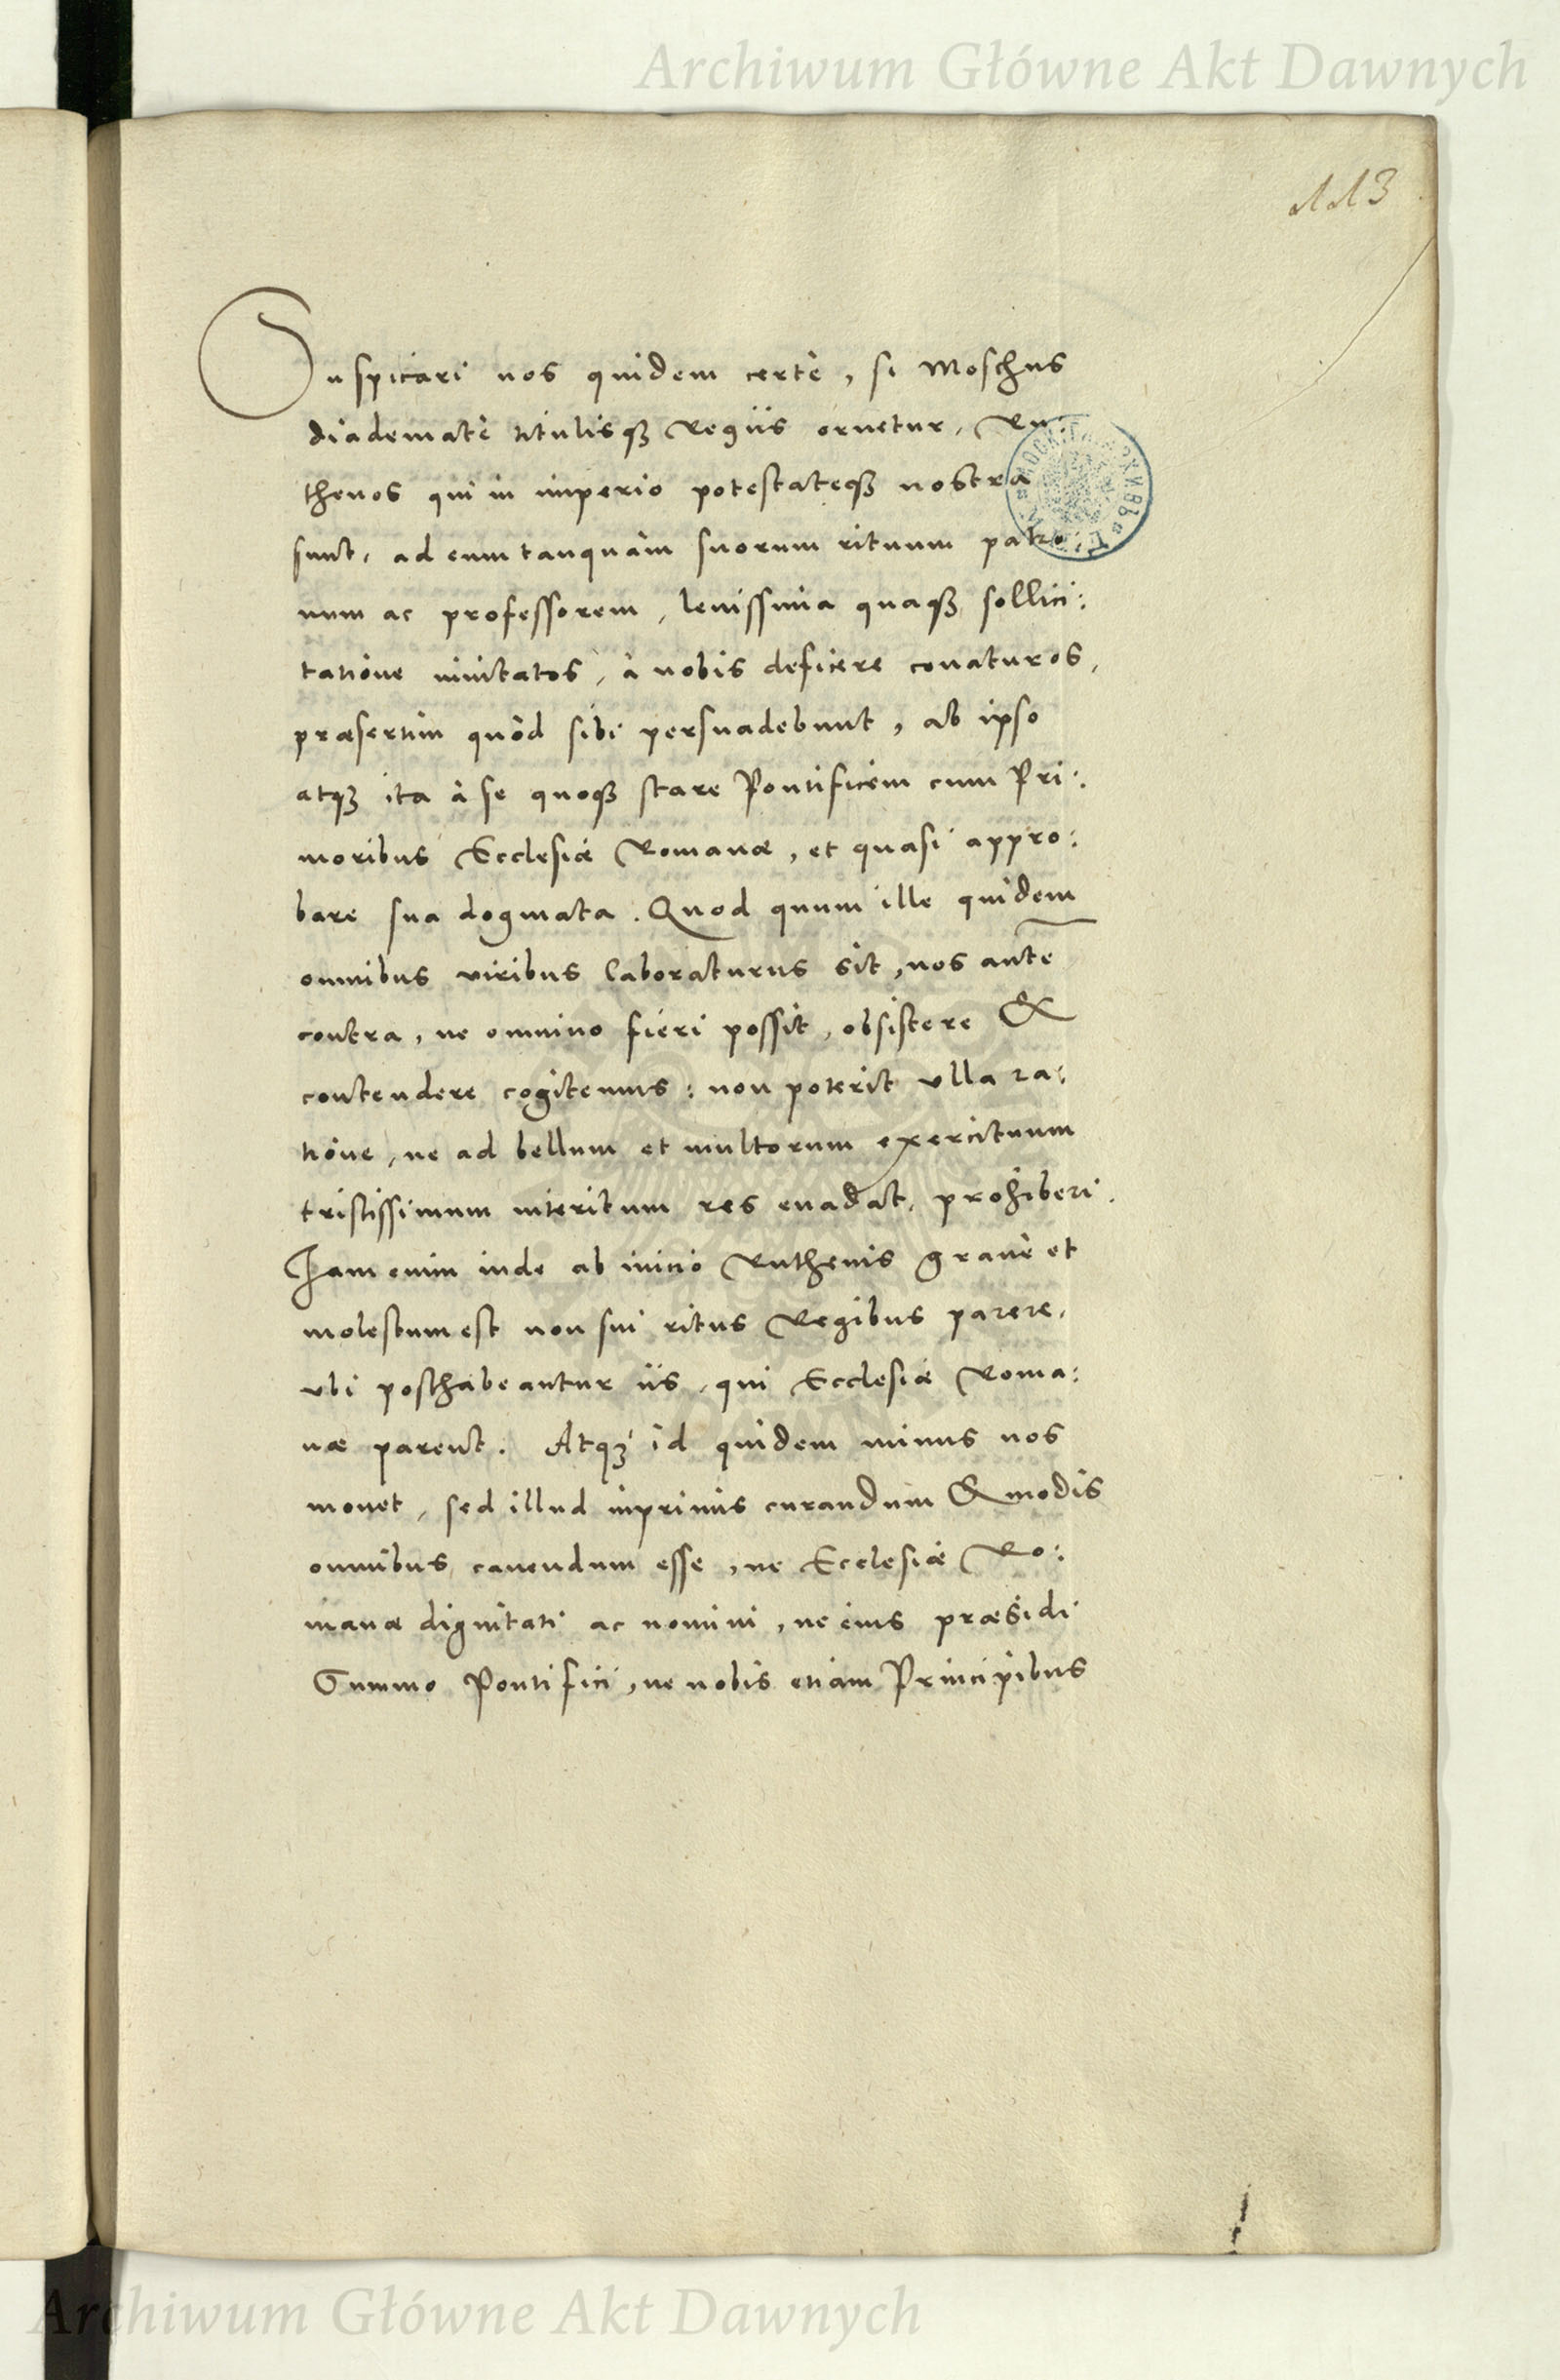 Archiwum Główne Akt Dawnych
113
Suspicari nos quidem certè, si Moschus
diademate titulisq3 Regiis ornetur, Ru:
thenos qui in imperio potestateq3 nostra
sunt, ad eum tanquàm suorum rituum patro:
num ac professorem, leuissima quaq3 sollici:
tatione inuitatos, à nobis deficere conaturos,
præsertim quòd sibi persuadebunt, ab ipso
atq3 ita à se quoq3 stare Pontificem cum Pri:
moribus Ecclesiæ Romanæ, et quasi appro:
bare sua dogmata. Quod quum ille quidem
omnibus viribus laboraturus sit, nos autē
contra, ne omnino fieri possit, obsistere &
contendere cogitemus: non poterit vlla ra:
tione, ne ad bellum et multorum exercituum
tristissimum interitum res euadat, prohiberi.
Iam enim inde ab inicio Ruthenis graue et
molestum est non sui ritus Regibus parere,
vbi posthabeantur iis, qui Ecclesiæ Roma:
næ parent. Atq3 id quidem minus nos
mouet, sed illud inprimis curandum & modis
omnibus cauendum esse, ne Ecclesiæ Ro:
manæ dignitati ac nomini, ne eius præsidi
Summo Pontifici, ne nobis etiam Principibus
Archiwum Główne Akt Dawnych